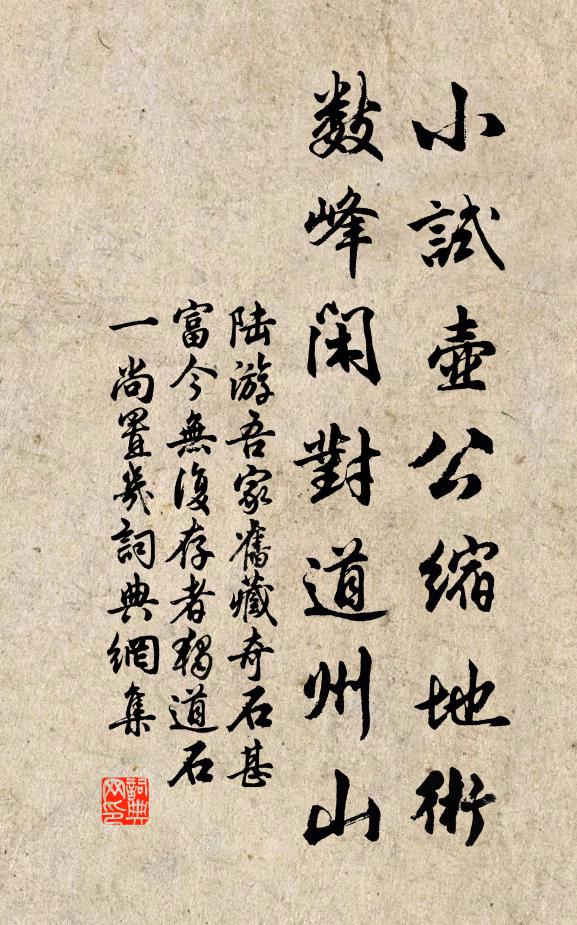 小試壺公縮地術
數峰閑對道州山
陸游吾家舊藏奇石甚
富今無復存者獨道石
一尚置几詞典網集
詞典网印